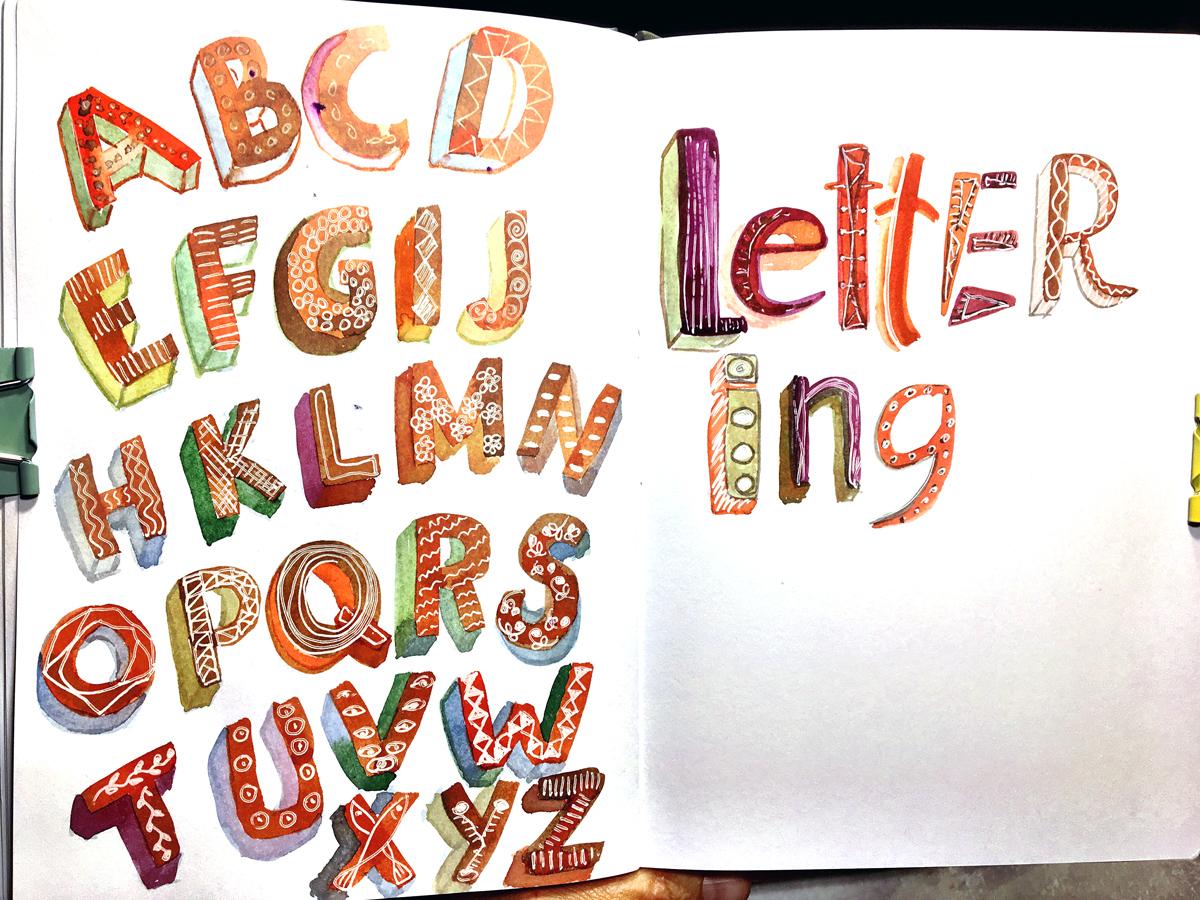 A B C D
E F G I J
H K L M N
O P Q R S
T U V W
X Y Z
lettER
ing